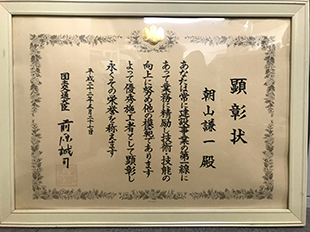 顕彰状
朝山謙一殿
あなたは常に建設事業の第一線に
あって業務に精励し技術・技能の
向上に努め他の模範であります
よって優秀施工者として顕彰し
永くその栄誉を称えます
平成二十二年五月二十七日
国土交通大臣 前原誠司